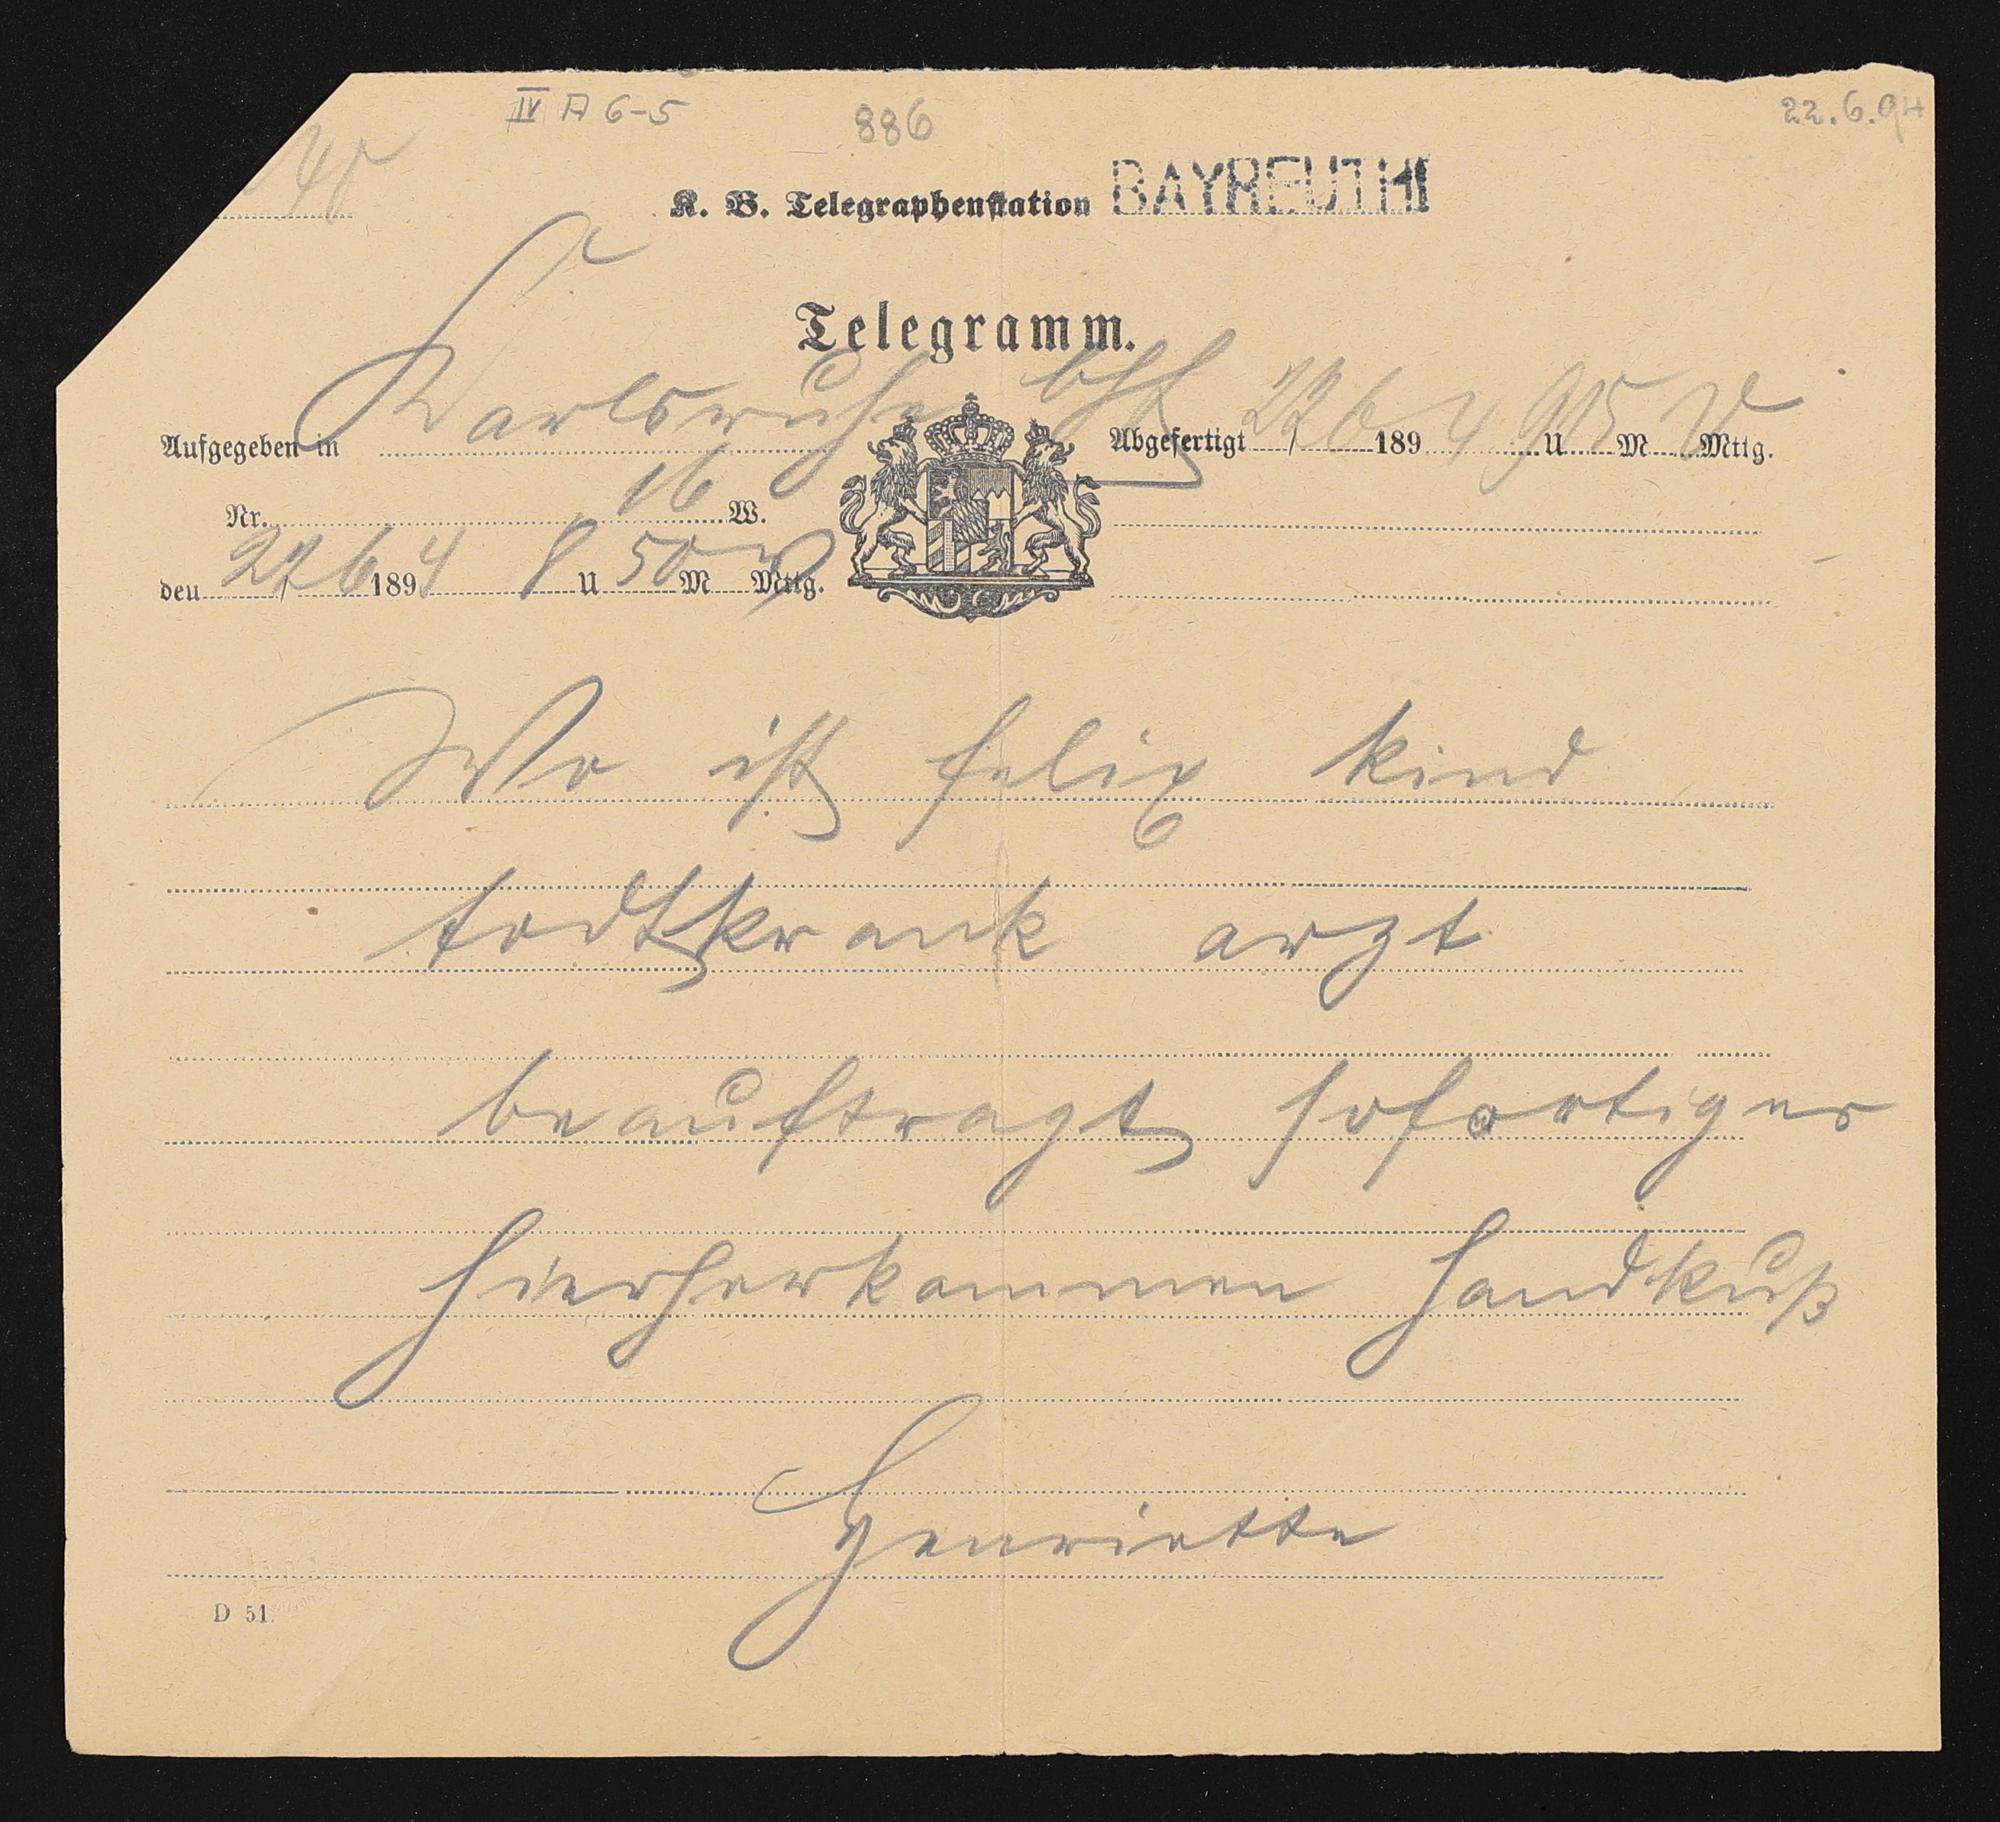 IV A 6-5
886
22.6.94
K. B. Telegraphenstation BAYREUTH
Telegramm.
Aufgegeben in Karlsruhe bhf
Abgefertigt 22/6 1894 9 U 15 M V Mttg.
Nr. 16 W.
den 22/6 1894 8 U 50 M V Mttg.
Wo ist felix kind
todtkrank arzt
beauftragt sofortiges
hierherkommen handkuß
Henriette
D 51.